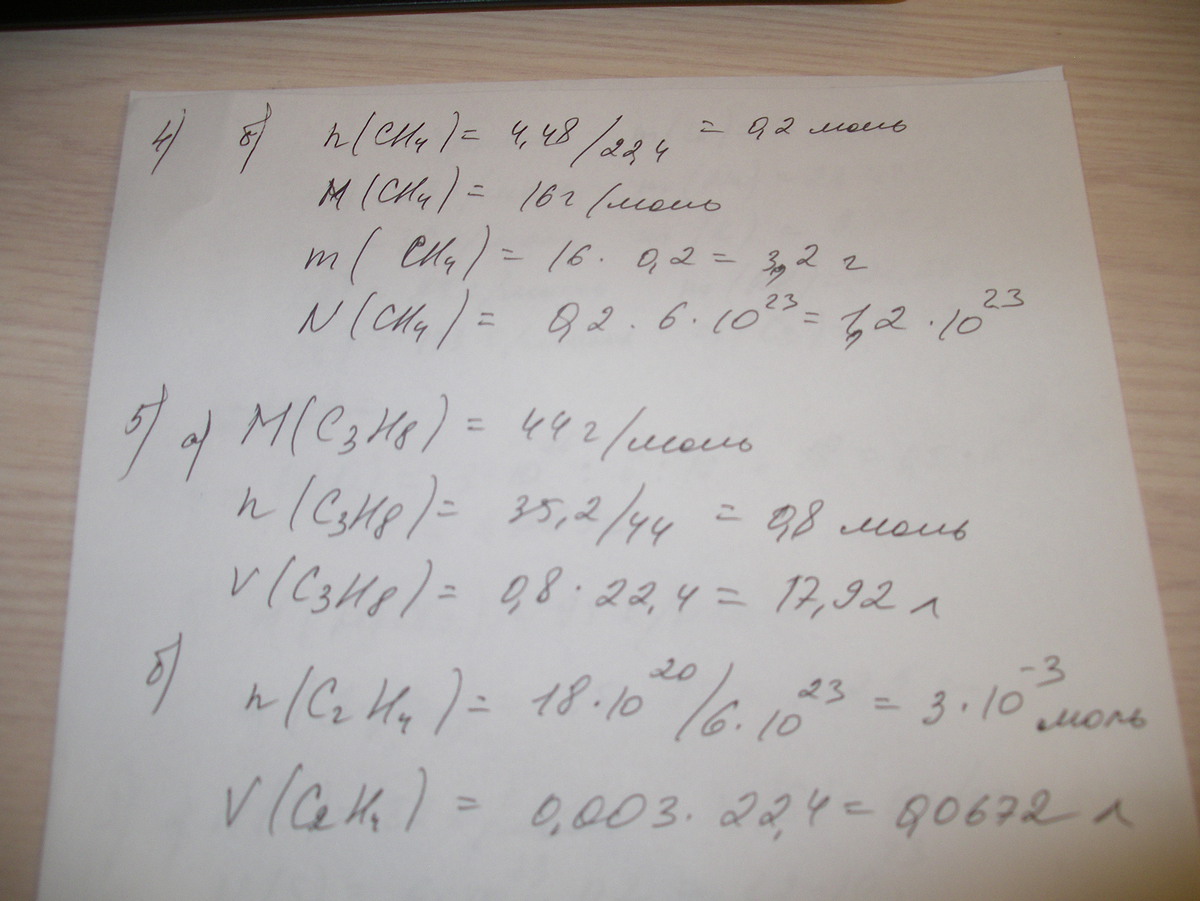 4) б) n(CH₄) = 4,48/22,4 = 0,2 моль
M(CH₄) = 16 г/моль
m(CH₄) = 16 · 0,2 = 3,2 г
N(CH₄) = 0,2 · 6 · 10²³ = 1,2 · 10²³
5) а) M(C₃H₈) = 44 г/моль
n(C₃H₈) = 35,2/44 = 0,8 моль
V(C₃H₈) = 0,8 · 22,4 = 17,92 л
б) n(C₂H₄) = 18 · 10²⁰/6 · 10²³ = 3 · 10⁻³ моль
V(C₂H₄) = 0,003 · 22,4 = 0,0672 л